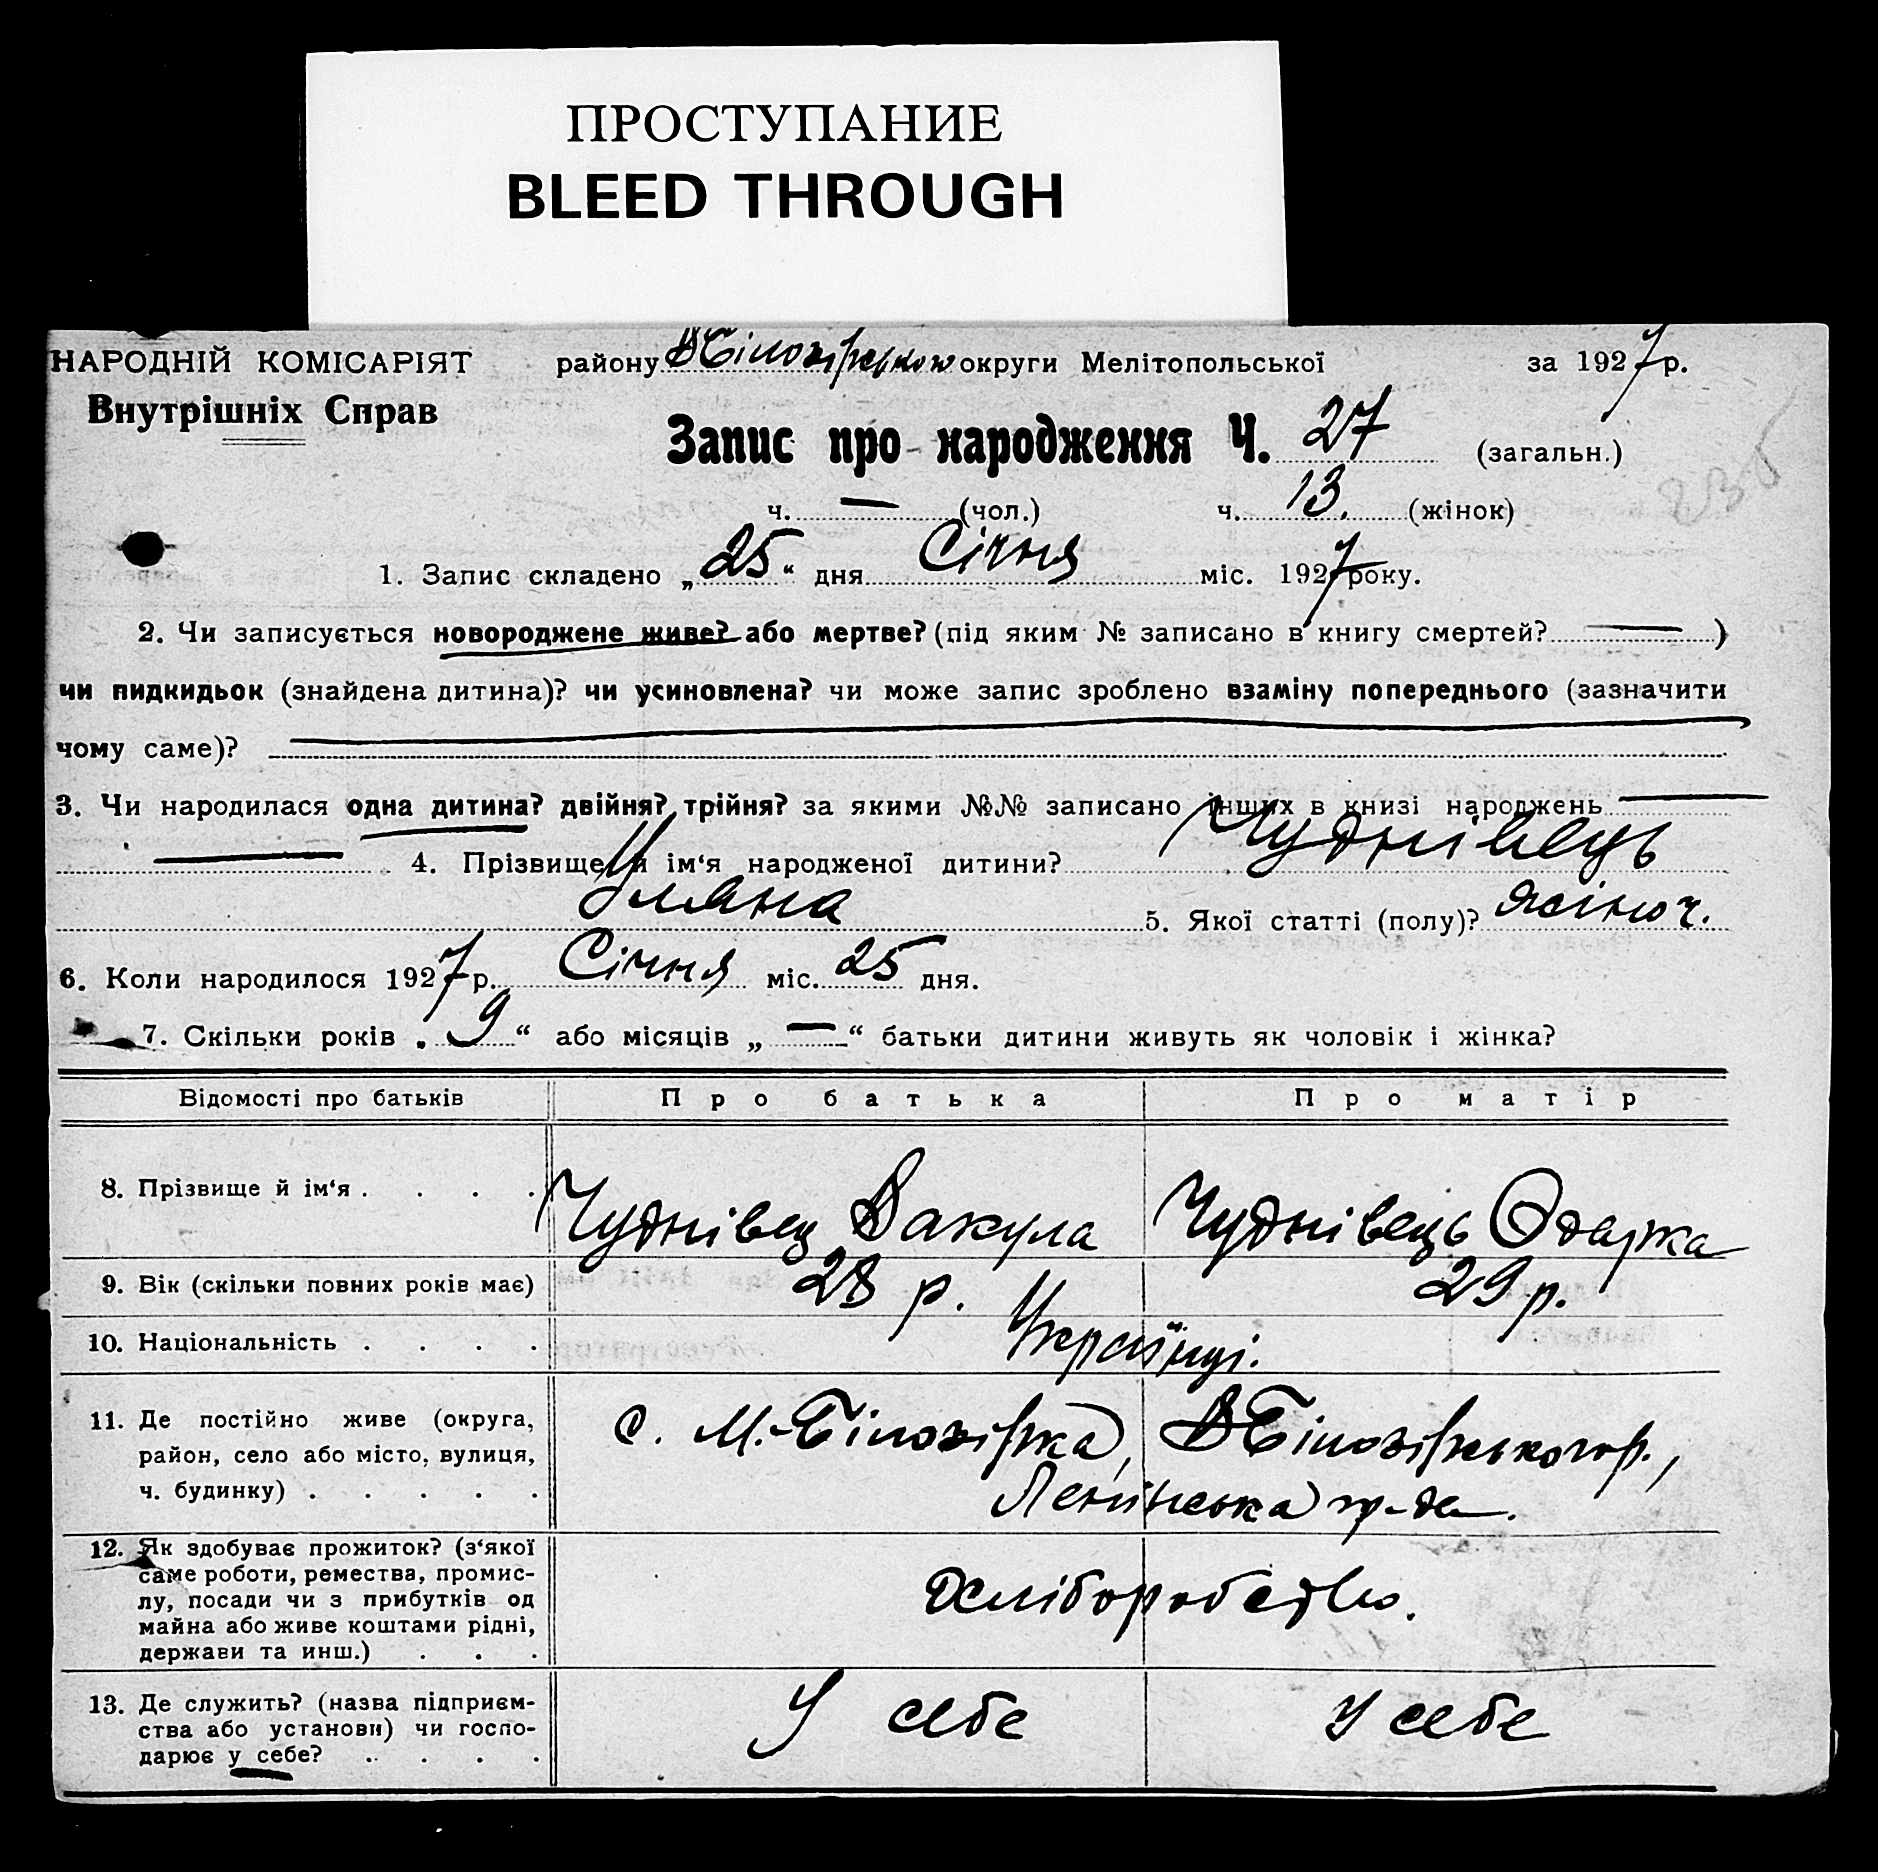 ПРОСТУПАНИЕ
BLEED THROUGH
НАРОДНІЙ КОМІСАРІЯТ району В Білозірськои округи Мелітопольської за 1927 р.
Внутрішніх Справ
Запис про народження Ч. 27 (загальн.)
ч. — (чол.) ч. 13. (жінок)
1. Запис складено „25“ дня Січня міс. 1927 року.
2. Чи записується новороджене живе? або мертве? (під яким № записано в книгу смертей? — )
чи пидкидьок (знайдена дитина)? чи усиновлена? чи може запис зроблено взаміну попереднього (зазначити
чому саме)? —
3. Чи народилася одна дитина? двійня? трійня? за якими №№ записано інших в книзі народжень —
— 4. Прізвище й ім‘я народженої дитини? Чуднівець
Уляна 5. Якої статті (полу)? жіноч.
6. Коли народилося 1927 р. Січня міс. 25 дня.
7. Скільки років „9“ або місяців „—“ батьки дитини живуть як чоловік і жінка?
Відомості про батьків Про батька Про матір
8. Прізвище й ім‘я . . . . Чуднівец Вакула Чуднівець Одарка
9. Вік (скільки повних років має) 28 р. 29 р.
10. Національність . . . . Українці.
11. Де постійно живе (округа, с. М.-Білозірка, В Білозірського р.,
район, село або місто, вулиця,
ч. будинку) . . . . . Ленінська гр-да.
12. Як здобуває прожиток? (з‘якої
саме роботи, ремества, промис-
лу, посади чи з прибутків од хліборобство.
майна або живе коштами рідні,
держави та инш.) . . .
13. Де служить? (назва підприєм- У себе У себе
ства або установи) чи госпо-
дарює у себе? . . . .